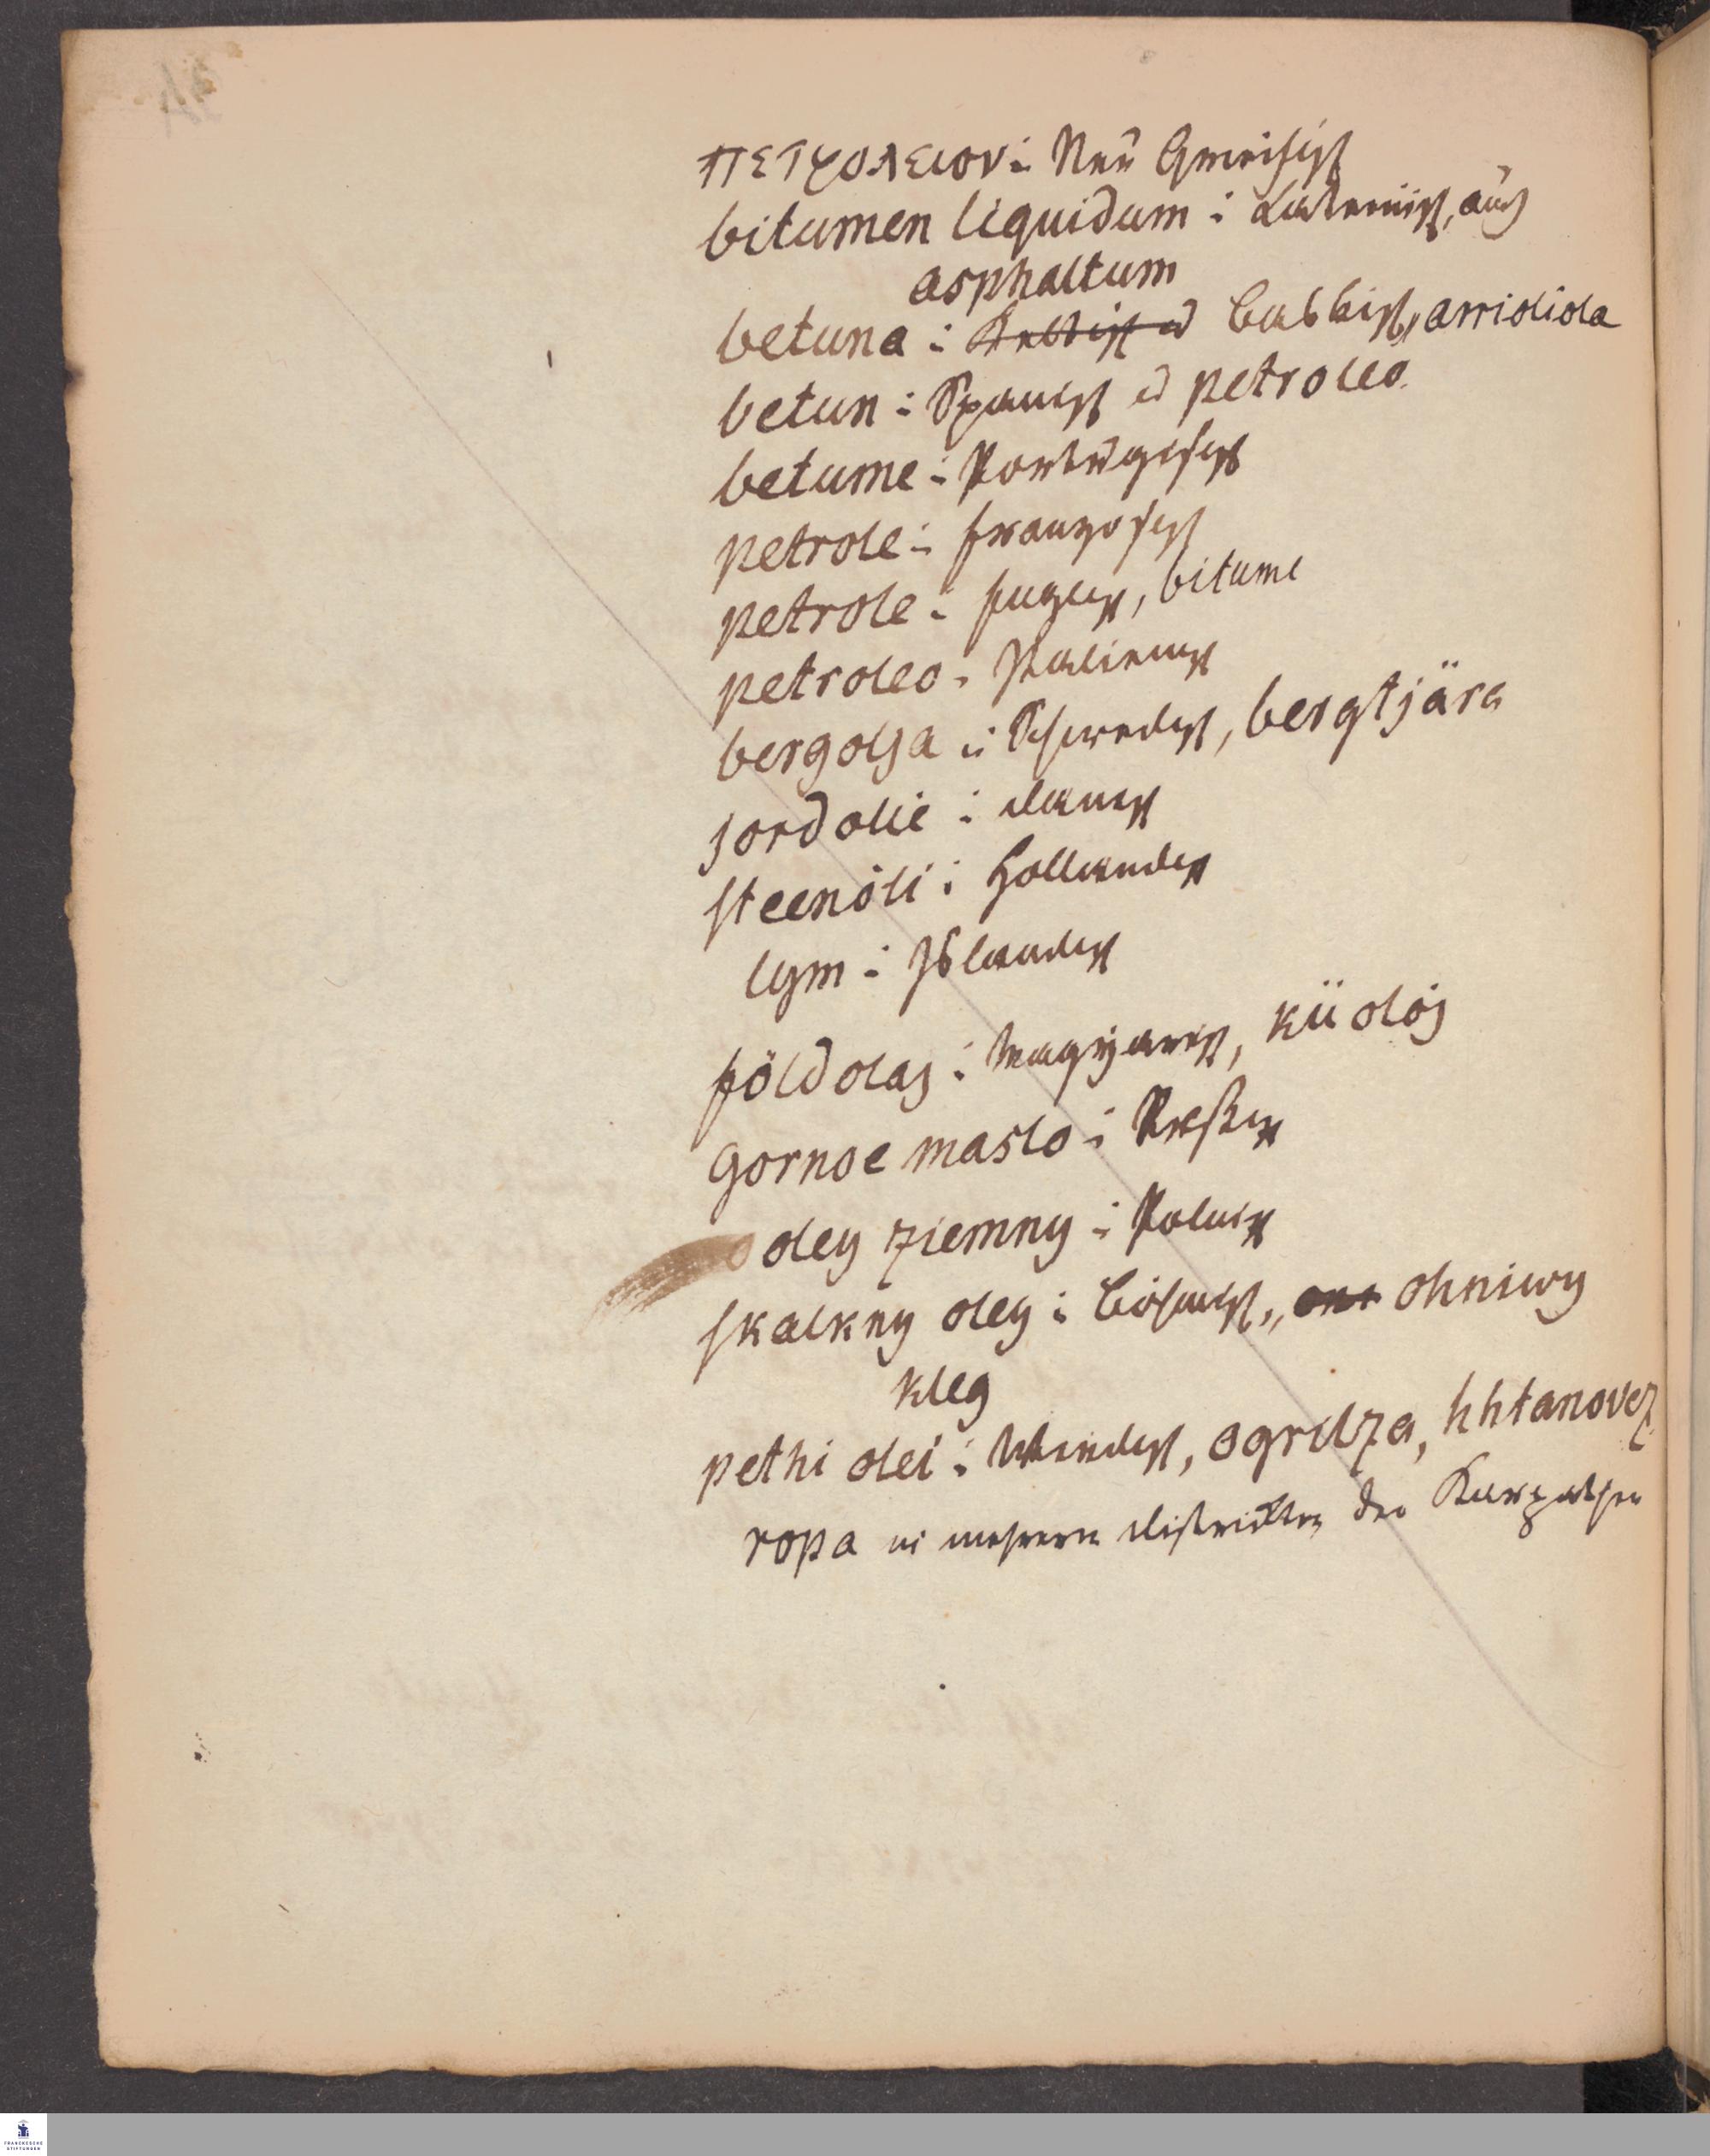 πετρολειον: Neŭ Grieisch
bitumen liquidum: Lateinisch, auch
asphaltum
betuna: Keltisch ŭ Baskisch, arridiola
betun: Spanisch ŭ petroleo.
betume: Portŭgisisch
petrole: französisch
petrole: Englisch, bitume
petroleo: Italienisch
bergolja: Schwedisch, bergtjära
jordolie: Dänisch
steenöli: Holländisch
lym: Isländisch
földolaj: Magÿarisch, kü oloj
gornoe maslo: Rŭßisch
oley ziemny: Polnisch
skalkny oley: Böhmisch, ohniwy
kley
pethi olei: Wendisch, ogrilza, hhtanovez
ropa in mehrern Districkten der Karpathen
FRANCKESCHE
STIFTUNGEN